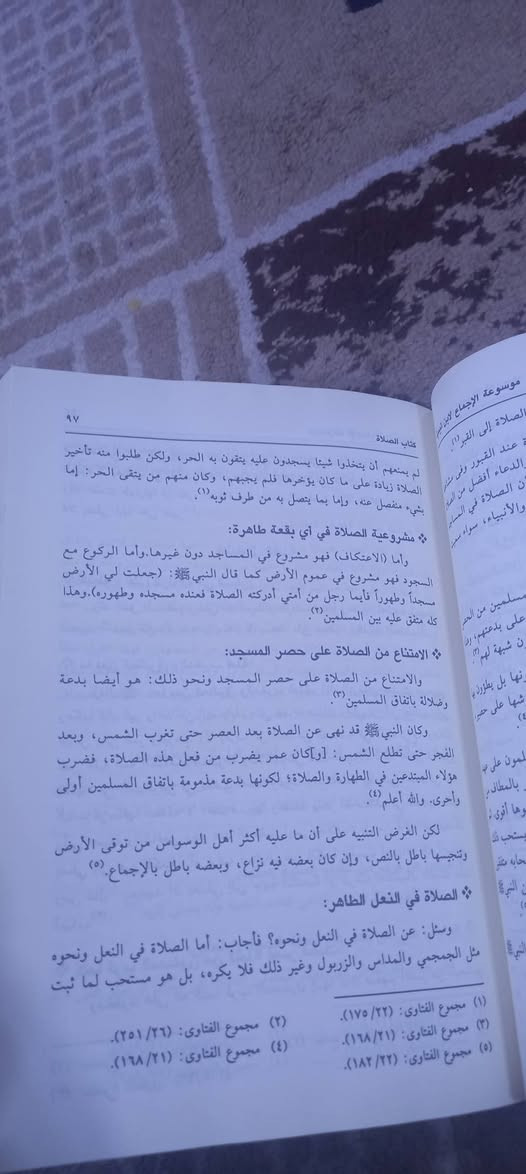 كتاب الصلاة ٩٧
لم يمنعهم أن يتخذوا شيئا يسجدون عليه يتقون به الحر، ولكن طلبوا منه تأخير
الصلاة زيادة على ما كان يؤخرها فلم يجبهم، وكان منهم من يتقى الحر: إما
بشيء منفصل عنه، وإما بما يتصل به من طرف ثوبه(١).
❖ مشروعية الصلاة في أي بقعة طاهرة:
وأما (الاعتكاف) فهو مشروع في المساجد دون غيرها.وأما الركوع مع
السجود فهو مشروع في عموم الأرض كما قال النبي ﷺ: (جعلت لي الأرض
مسجداً وطهوراً فأيما رجل من أمتي أدركته الصلاة فعنده مسجده وطهوره).وهذا
كله متفق عليه بين المسلمين(٢).
❖ الامتناع من الصلاة على حصر المسجد:
والامتناع من الصلاة على حصر المسجد ونحو ذلك: هو أيضا بدعة
وضلالة باتفاق المسلمين(٣).
وكان النبي ﷺ قد نهى عن الصلاة بعد العصر حتى تغرب الشمس، وبعد
الفجر حتى تطلع الشمس: [و]كان عمر يضرب من فعل هذه الصلاة، فضرب
هؤلاء المبتدعين في الطهارة والصلاة؛ لكونها بدعة مذمومة باتفاق المسلمين أولى
وأحرى. والله أعلم(٤).
لكن الغرض التنبيه على أن ما عليه أكثر أهل الوسواس من توقى الأرض
وتنجيسها باطل بالنص، وإن كان بعضه فيه نزاع، وبعضه باطل بالإجماع.(٥)
❖ الصلاة في النعل الطاهر:
وسئل: عن الصلاة في النعل ونحوه؟ فأجاب: أما الصلاة في النعل ونحوه
مثل الجمجمي والمداس والزربول وغير ذلك فلا يكره، بل هو مستحب لما ثبت
(١) مجموع الفتاوى: (١٧٥/٢٢). (٢) مجموع الفتاوى: (٢٥١/٢٦).
(٣) مجموع الفتاوى: (١٦٨/٢١). (٤) مجموع الفتاوى: (١٦٨/٢١).
(٥) مجموع الفتاوى: (١٨٢/٢٢).
موسوعة الإجماع
الصلاة إلى القبر(١).
عند القبور وفى
الدعاء أفضل من
ن الصلاة في
والأنبياء، سواء
مسلمين من
على بدعتهم،
ن شبهة لهم